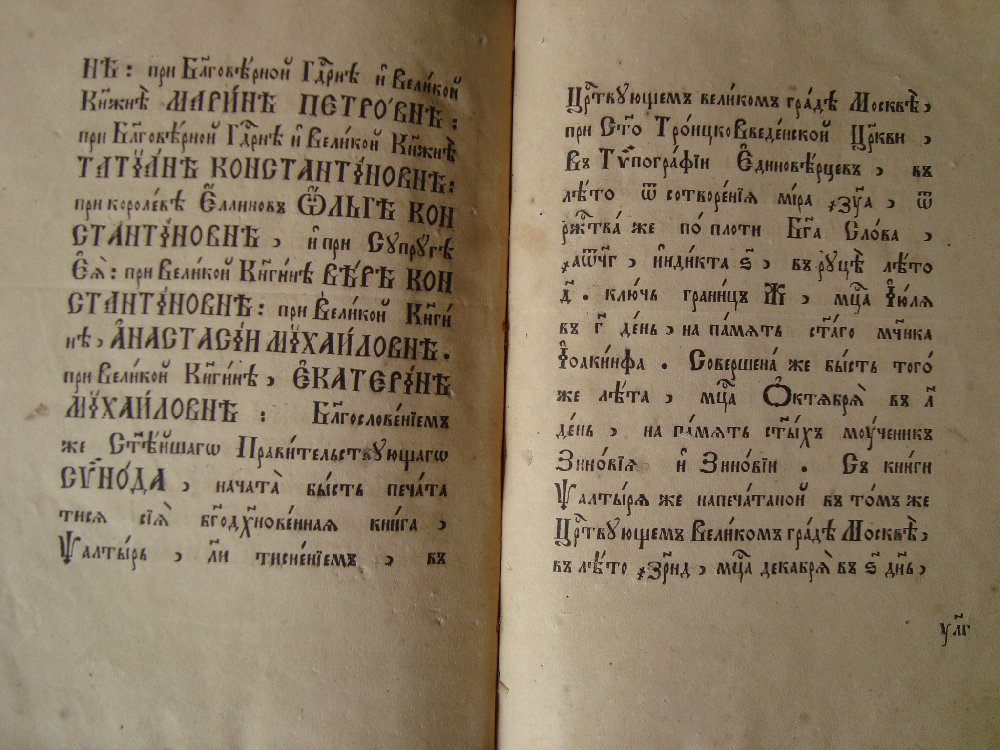 нѣ: при Бл҃говѣ́рной Гдⷭ҇рнѣ и҆ Вели́кой
Кн҃жнѣ̀ МАРІ́НѢ ПЕТРО́ВНѢ:
при Бл҃говѣ́рной Гдⷭ҇рнѣ и҆ Вели́кой Кн҃жнѣ
ТАТІѦ́НѢ КОНСТАНТІ́НОВНѢ:
при королѐвѣ Е҆́ллиновъ Ѻ҆́ЛЬГѢ КОН
СТАНТІ́НОВНѢ, и҆ при Супру́гѣ
Е҆ѧ̀: при Вели́кой Кн҃ги́нѣ ВѢ́РѢ КОН
СТАНТІ́НОВНѢ: при Вели́кой Кн҃ги́
нѣ, А҆НАСТАСІ́И МИХА́ЙЛОВНѢ.
при Вели́кой Кн҃ги́нѣ, Е҆КАТЕРІ́НѢ
МИХА́ЙЛОВНѢ: Бл҃гослове́нїемъ
же Ст҃ѣ́йшагѡ Прави́тельствꙋющагѡ
СѴ҆НО́ДА, нача́та бы́сть печа́та
тисѧ сїѧ̀ бг҃одх҃нове́нная кни́га,
Ѱалты́рь, а҃ли тисне́нїемъ, въ
Црⷭ҇твꙋющемъ вели́комъ гра́дѣ Москвѣ̀,
при Ст҃о Тро́ицко Введе́нской Цр҃кви,
въ Тѷпогра́фїи Е҆диновѣ́рцевъ, въ
лѣ́то ѿ сотворе́нїѧ мі́ра ҂зу҃а, ѿ
ржⷭ҇тва́ же по пло́ти Бг҃а Сло́ва,
҂аѿч҃г, и҆нди́кта ѕ҃, въ рꙋцѣ̀ лѣ́то
д҃. ключь грани́цъ Ж, мцⷭ҇а І҆ю́ля
въ г҃ де́нь, на па́мять ст҃а́го мч҃ника
І҆оаки́нѳа. Соверше́на же бы́сть того̀
же лѣ́та, мцⷭ҇а Ѻ҆ктя́брѧ въ л҃
де́нь, на па́мять ст҃ы́хъ моу́ченикъ
Зино́вїѧ и҆ Зино́вїи. Съ кни́ги
Ѱалты́рѧ же напеча́таной въ то́мъ же
Црⷭ҇твꙋющемъ Вели́комъ гра́дѣ Москвѣ̀,
въ лѣ́то ҂зрн҃д, мцⷭ҇а декабрѧ̀ въ ѕ҃ дн҃ь,
ул҃г